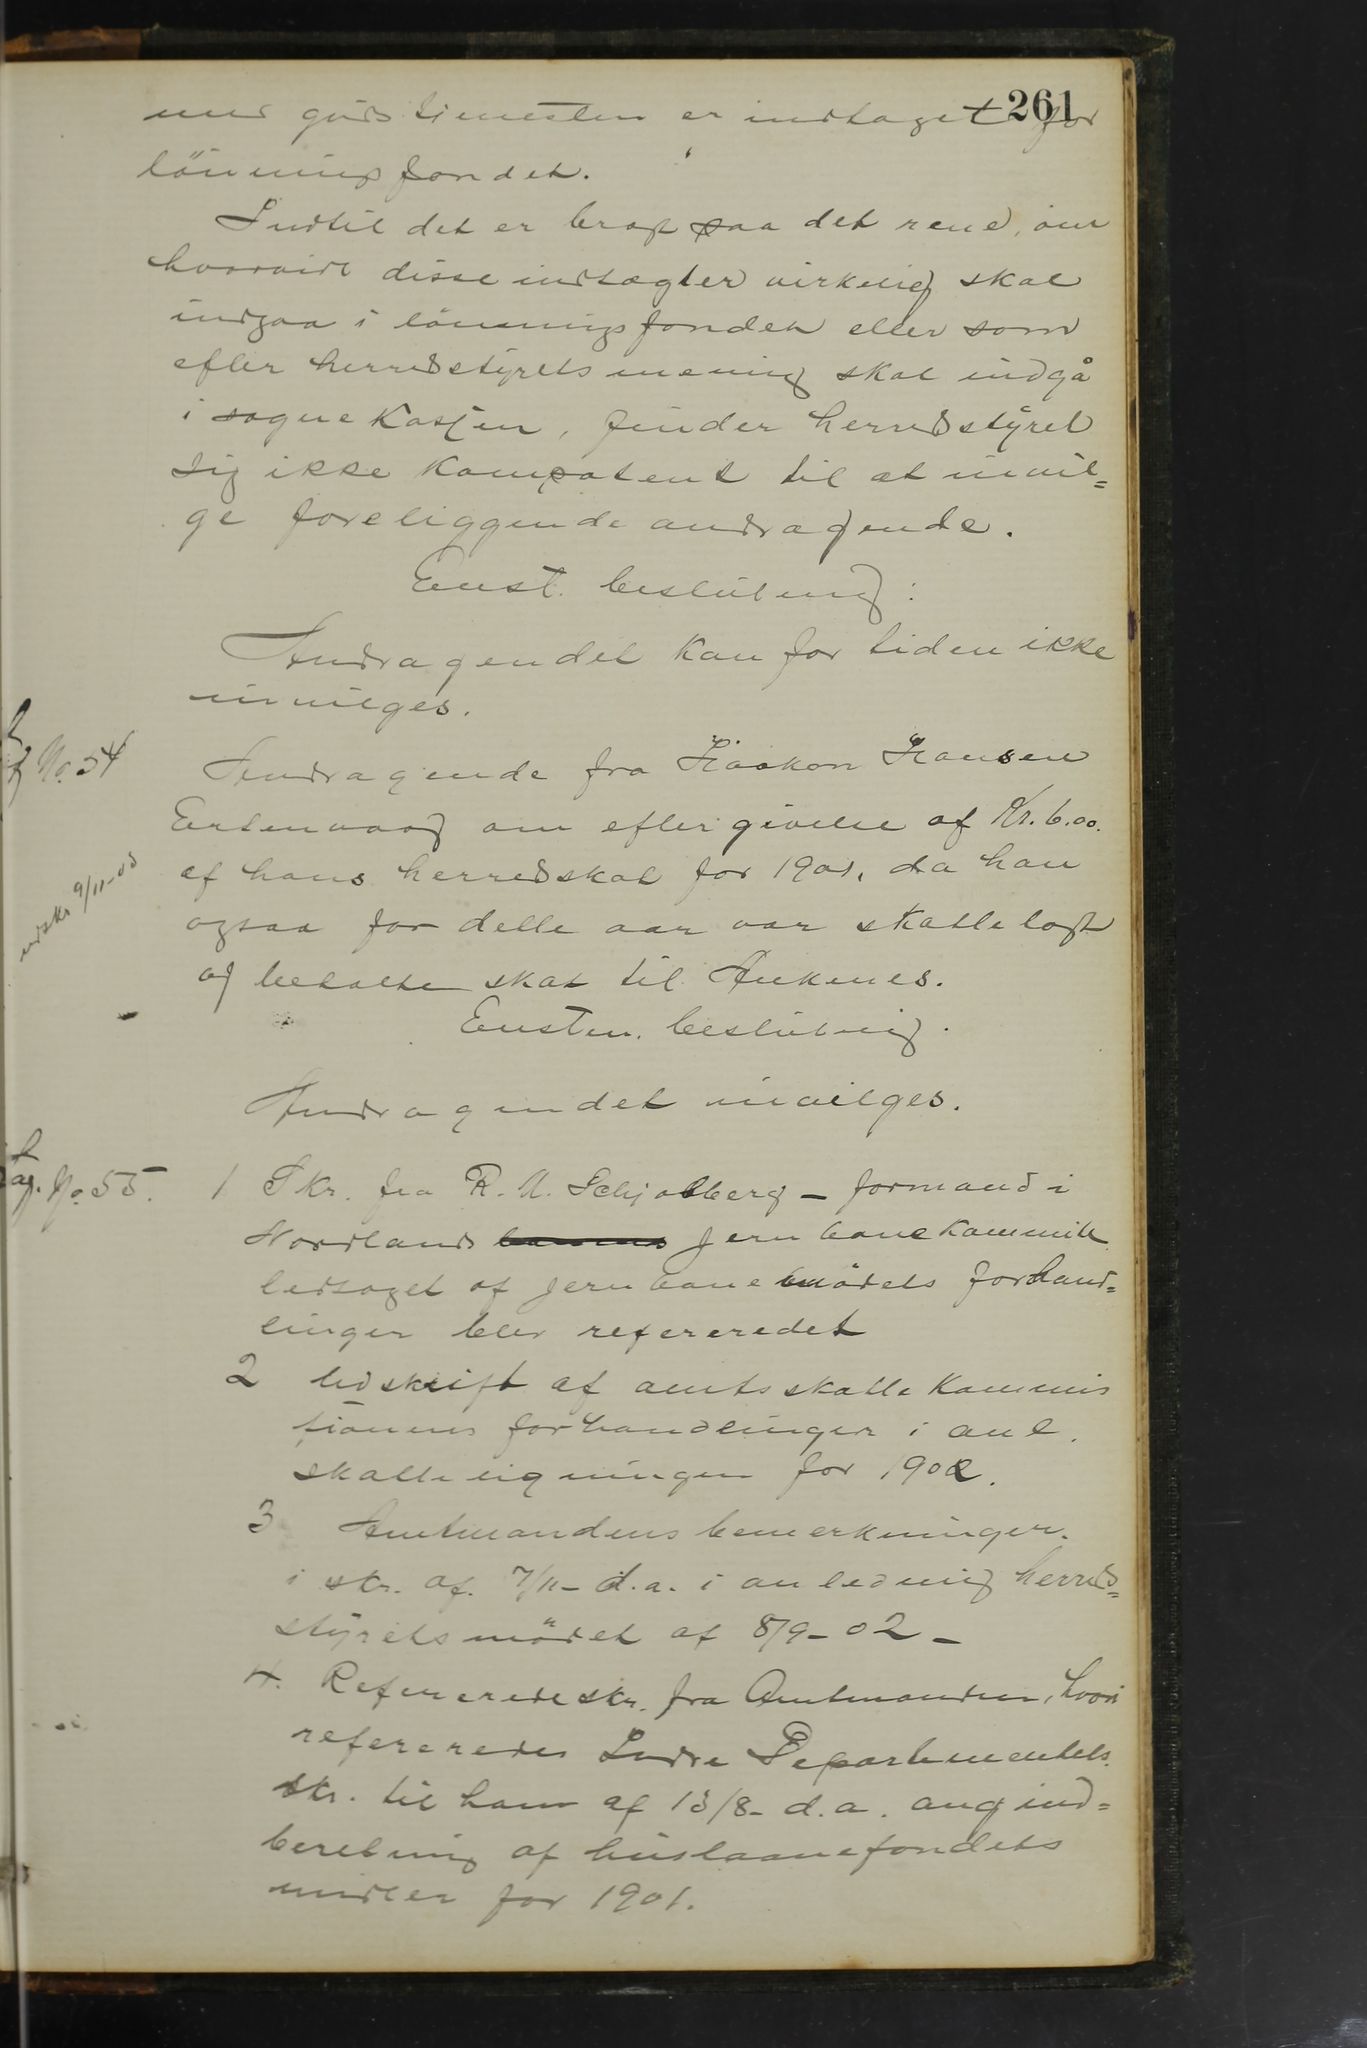 261
under gudstjenesten er indtaget for
lönningsfondet.
Indtil det er bragt paa det rene, om
hvorvidt disse indtægter virkelig skal
indgaa i lönningsfondet eller som
efter herredstyrets mening skal indgå
i sognekassen, finder herredstyret
sig ikke kompotent til at invil=
ge foreliggende andragende.
Enst. beslutning:
Andragendet kan for tiden ikke
invilges.
No. 54
Andragende fra Haakon Hansen
om eftergivelse af Kr. 6.00.
af hans herredskat for 1901, da han
ogsaa for dette aar var skattelagt
og betalte skat til Ankenes.
Enstem. beslutning.
Andragendet invilges.
No. 55.
1 Skr. fra R. U. Schjølberg – formand i
Nordlands Jernbanekommitte
ledsaget af jernbanemödets forhand=
linger blev refereredet
2 Udskrift af amtsskattekommis
sionens forhandlinger i anl.
skatteligningen for 1902.
3 Amtmandens bemerkninger.
i skr. af. 7/11- d.a. i anledning herreds=
styrets mödet af 8/9-02-
4. Refererede skr. fra Amtmanden, hvori
refereredes Indre Departementets.
skr. til ham af 13/8- d.a. ang ind=
beretning af huslaanefondets
midler for 1901.